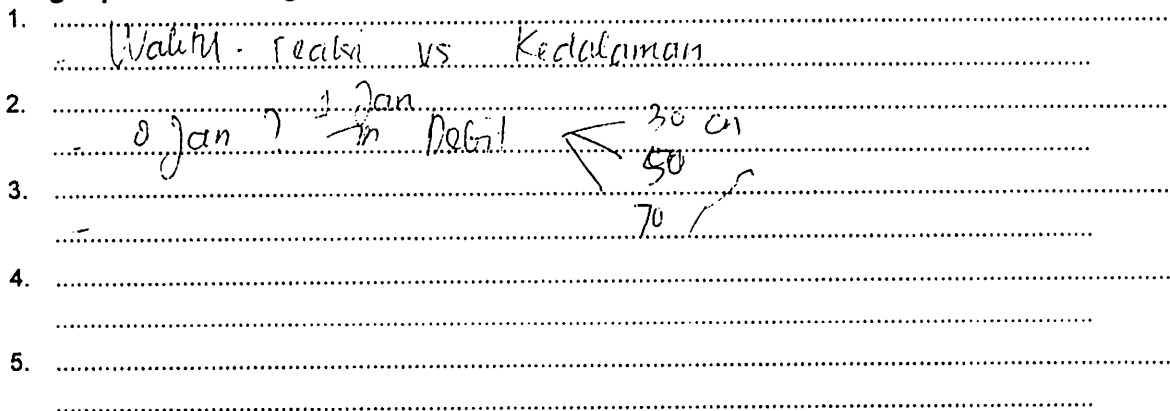 1.
Waktu reaksi vs Kedalaman
2.
1 Jan
0 Jan ? Debit 30 cm
50
3.
70
4.
5.